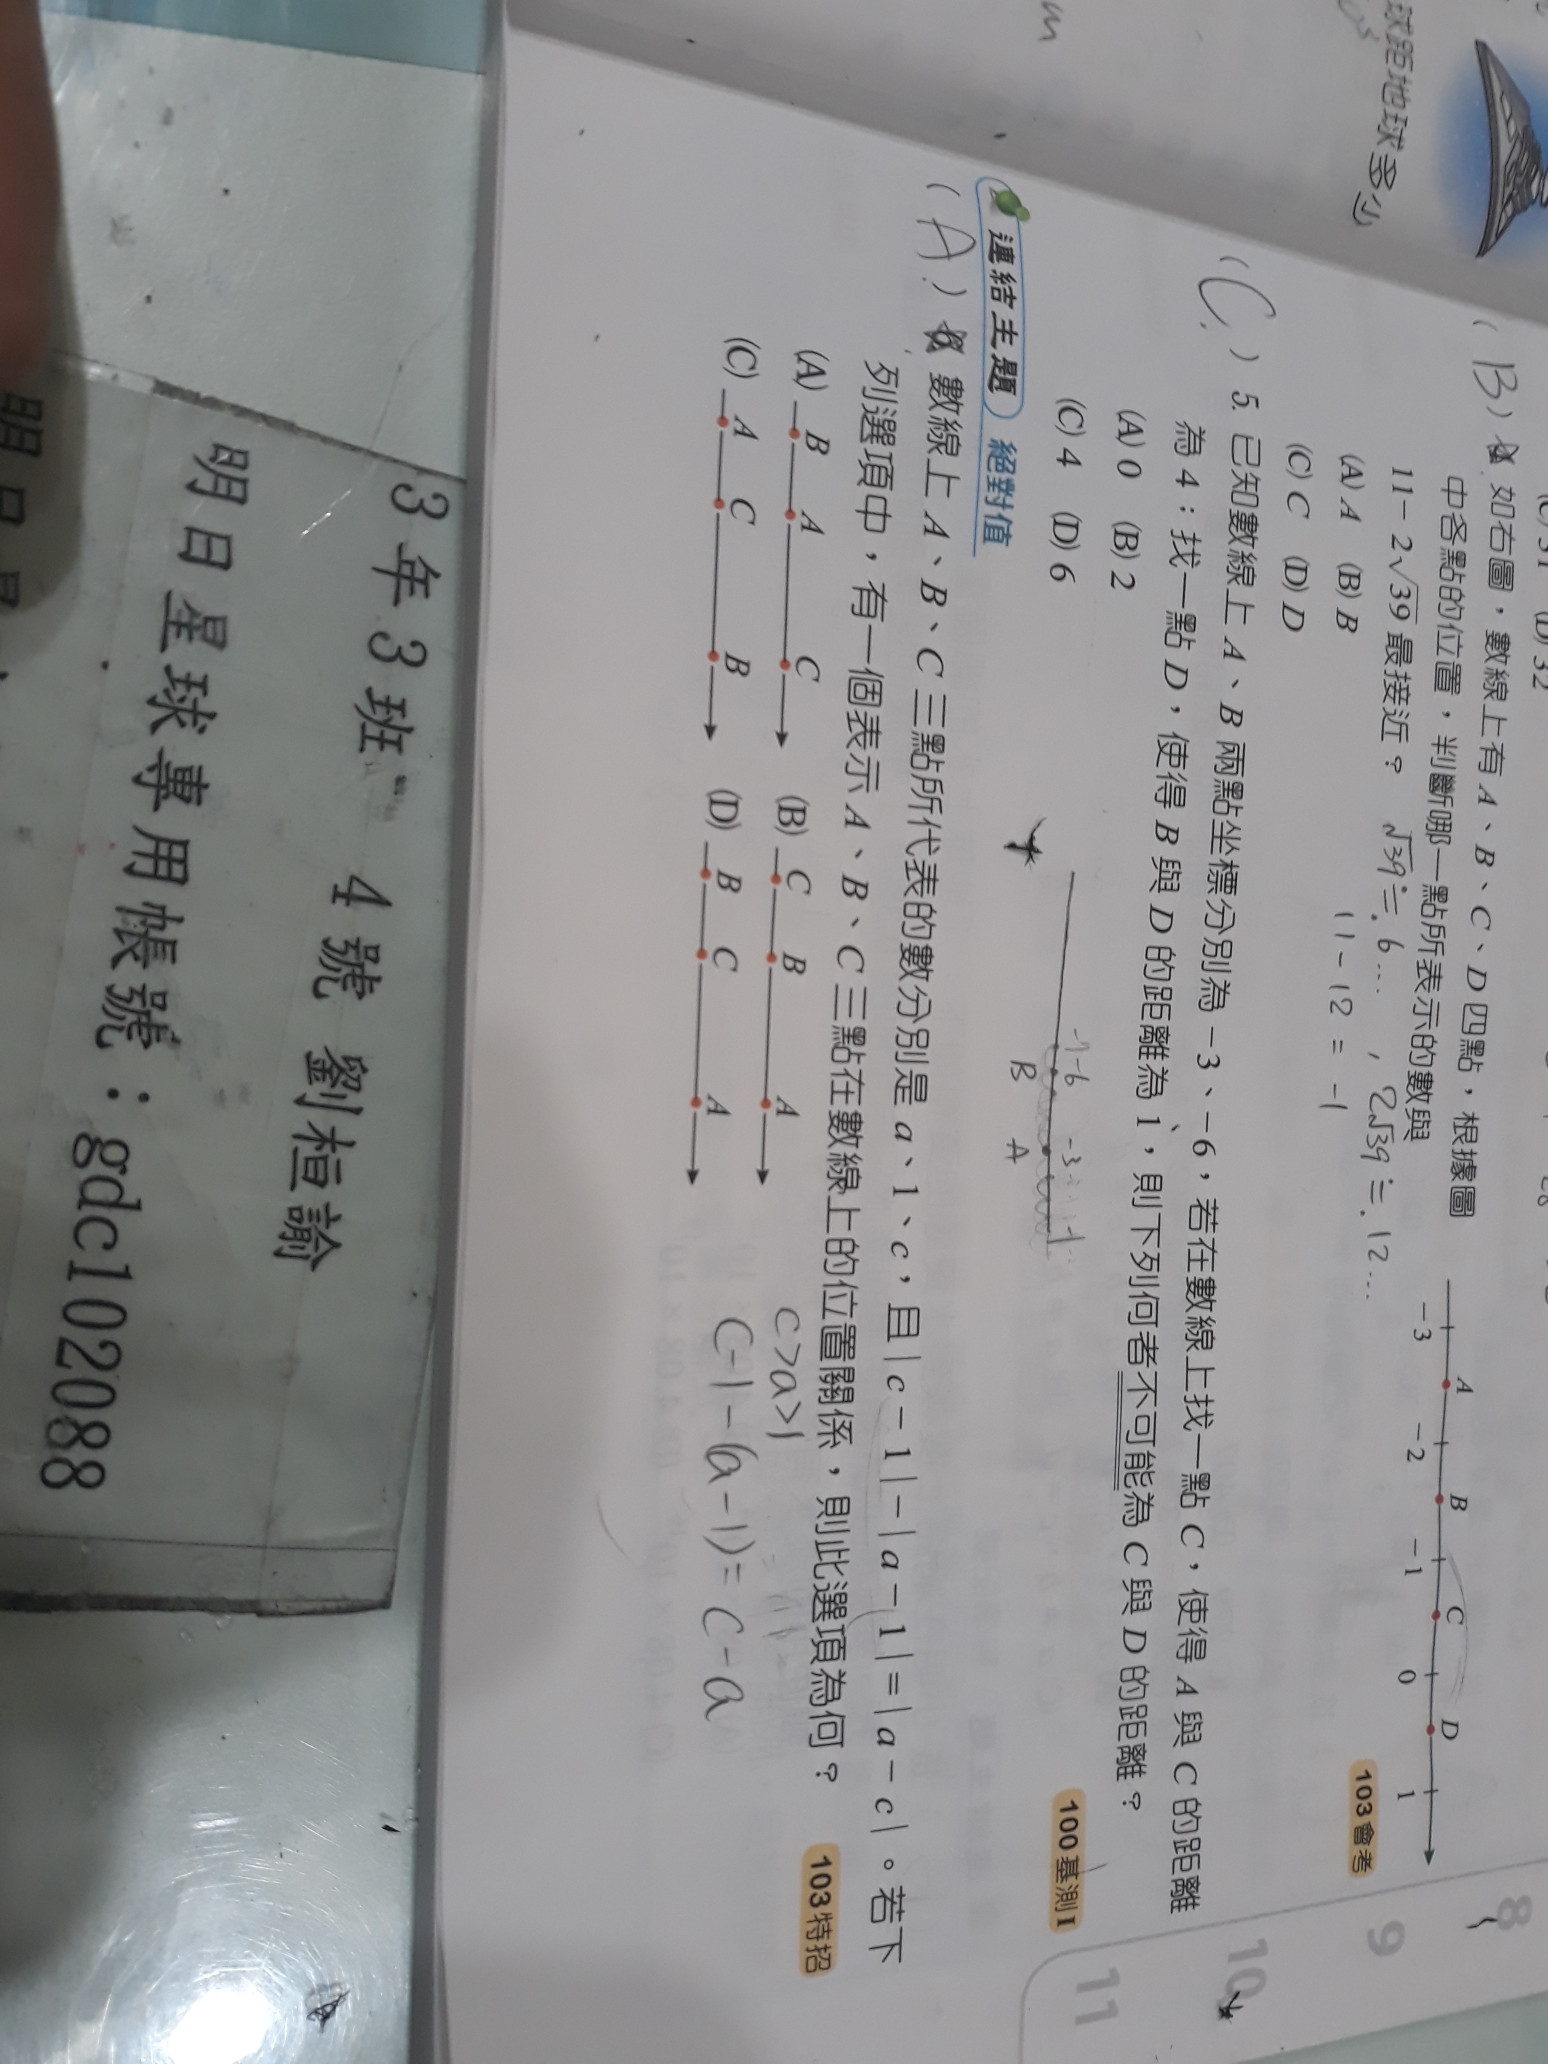 球距地球多少
m
(C) 31 (D) 32
( B ) 4. 如右圖，數線上有 A、B、C、D 四點，根據圖
中各點的位置，判斷哪一點所表示的數與
11－2√39 最接近？
(A) A (B) B
(C) C (D) D
A B C D
－3 －2 －1 0 1
103會考
√39≒6... , 2√39≒12...
11－12 = －1
( C ) 5. 已知數線上 A、B 兩點坐標分別為－3、－6，若在數線上找一點 C，使得 A 與 C 的距離
為 4；找一點 D，使得 B 與 D 的距離為 1，則下列何者不可能為 C 與 D 的距離？
(A) 0 (B) 2
(C) 4 (D) 6
100基測I
-7 -6 -3
B A
連結主題 絕對值
( A ) 6. 數線上 A、B、C 三點所代表的數分別是 a、1、c，且 | c－1 |－| a－1 |＝| a－c |。若下
列選項中，有一個表示 A、B、C 三點在數線上的位置關係，則此選項為何？
103特招
(A) B A C (B) C B A
(C) A C B (D) B C A
c>a>1
c-1-(a-1)=c-a
8
9
10
11
3年3班 4號 劉桓諭
明日星球專用帳號：gdc102088